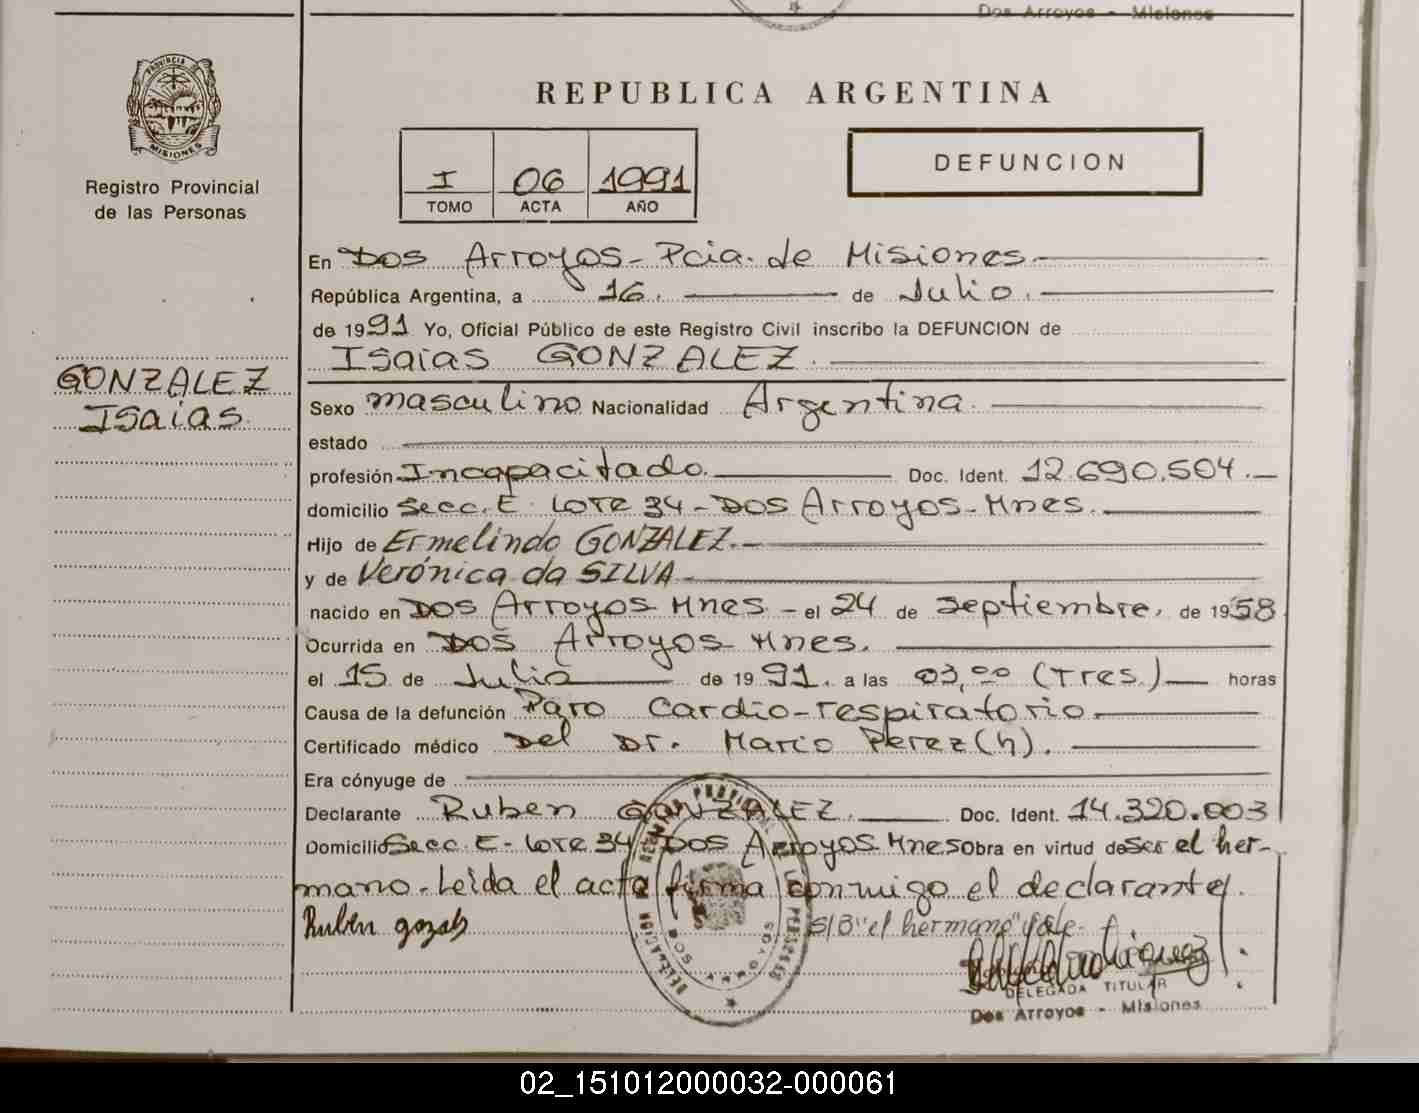 Dos Arroyos - Misiones
PROVINCIA DE
MISIONES
Registro Provincial
de las Personas
GONZALEZ
Isaías.
REPUBLICA ARGENTINA
I 06 1991
TOMO ACTA AÑO
DEFUNCION
En Dos Arroyos - Pcia. de Misiones
República Argentina, a 16. de Julio.
de 1991 Yo, Oficial Público de este Registro Civil inscribo la DEFUNCION de
Isaías GONZALEZ.
Sexo masculino Nacionalidad Argentina.
estado
profesión Incapacitado. Doc. Ident. 12.690.504.
domicilio Secc. E. Lote 34 - Dos Arroyos - Mnes.
Hijo de Ermelindo GONZALEZ.-
y de Verónica da SILVA
nacido en Dos Arroyos Mnes - el 24 de septiembre. de 1958
Ocurrida en Dos Arroyos Mnes.
el 15 de Julio de 1991. a las 03,00 (Tres.) horas
Causa de la defunción Paro Cardio-respiratorio
Certificado médico Del Dr. Mario Perez (h).
Era cónyuge de
Declarante Ruben GONZALEZ. Doc. Ident. 14.320.003
Domicilio Secc. E - Lote 34 Dos Arroyos Mnes Obra en virtud de Ser el her-
mano. Leída el acta firma conmigo el declarante.
Rubén gozals S/B "el hermano" Vale.
DELEGADA TITULAR
Dos Arroyos - Misiones
DOS ARROYOS
02_151012000032-000061